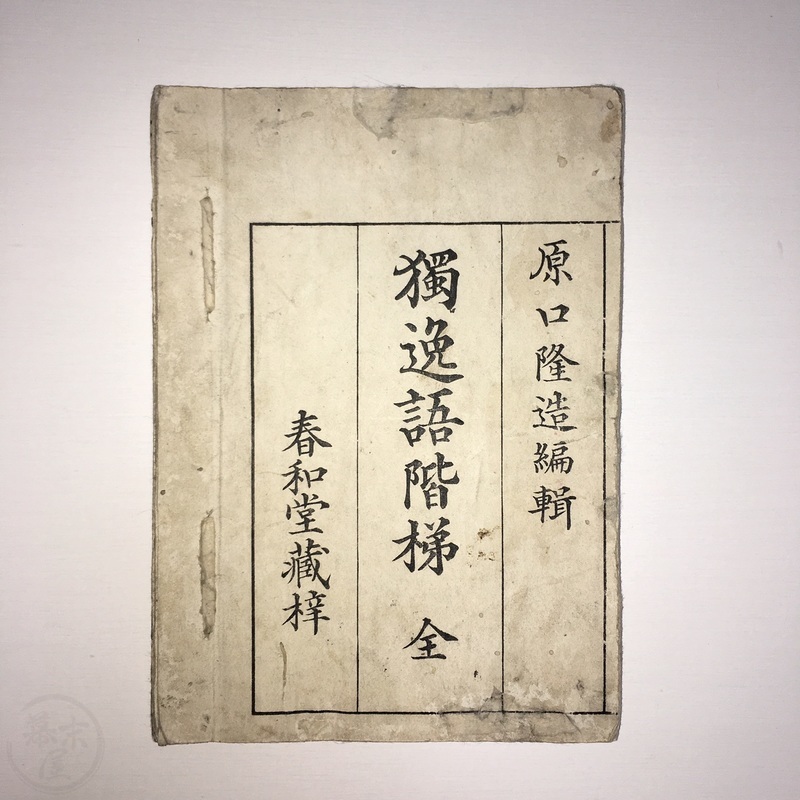 原口隆造編輯
獨逸語階梯 全
春和堂藏梓
幕末屋